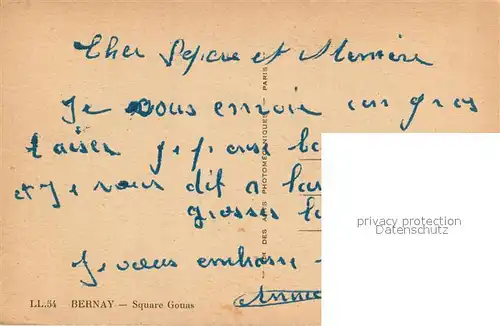 Cher Pepere et Memère
Je vous envoie un gros
baiser je pense
et Je vous dit a
grosses
Je vous embrasse
Annie
LL.54 BERNAY — Square Gouas
PHOTOMÉCANIQUES PARIS
privacy protection
Datenschutz